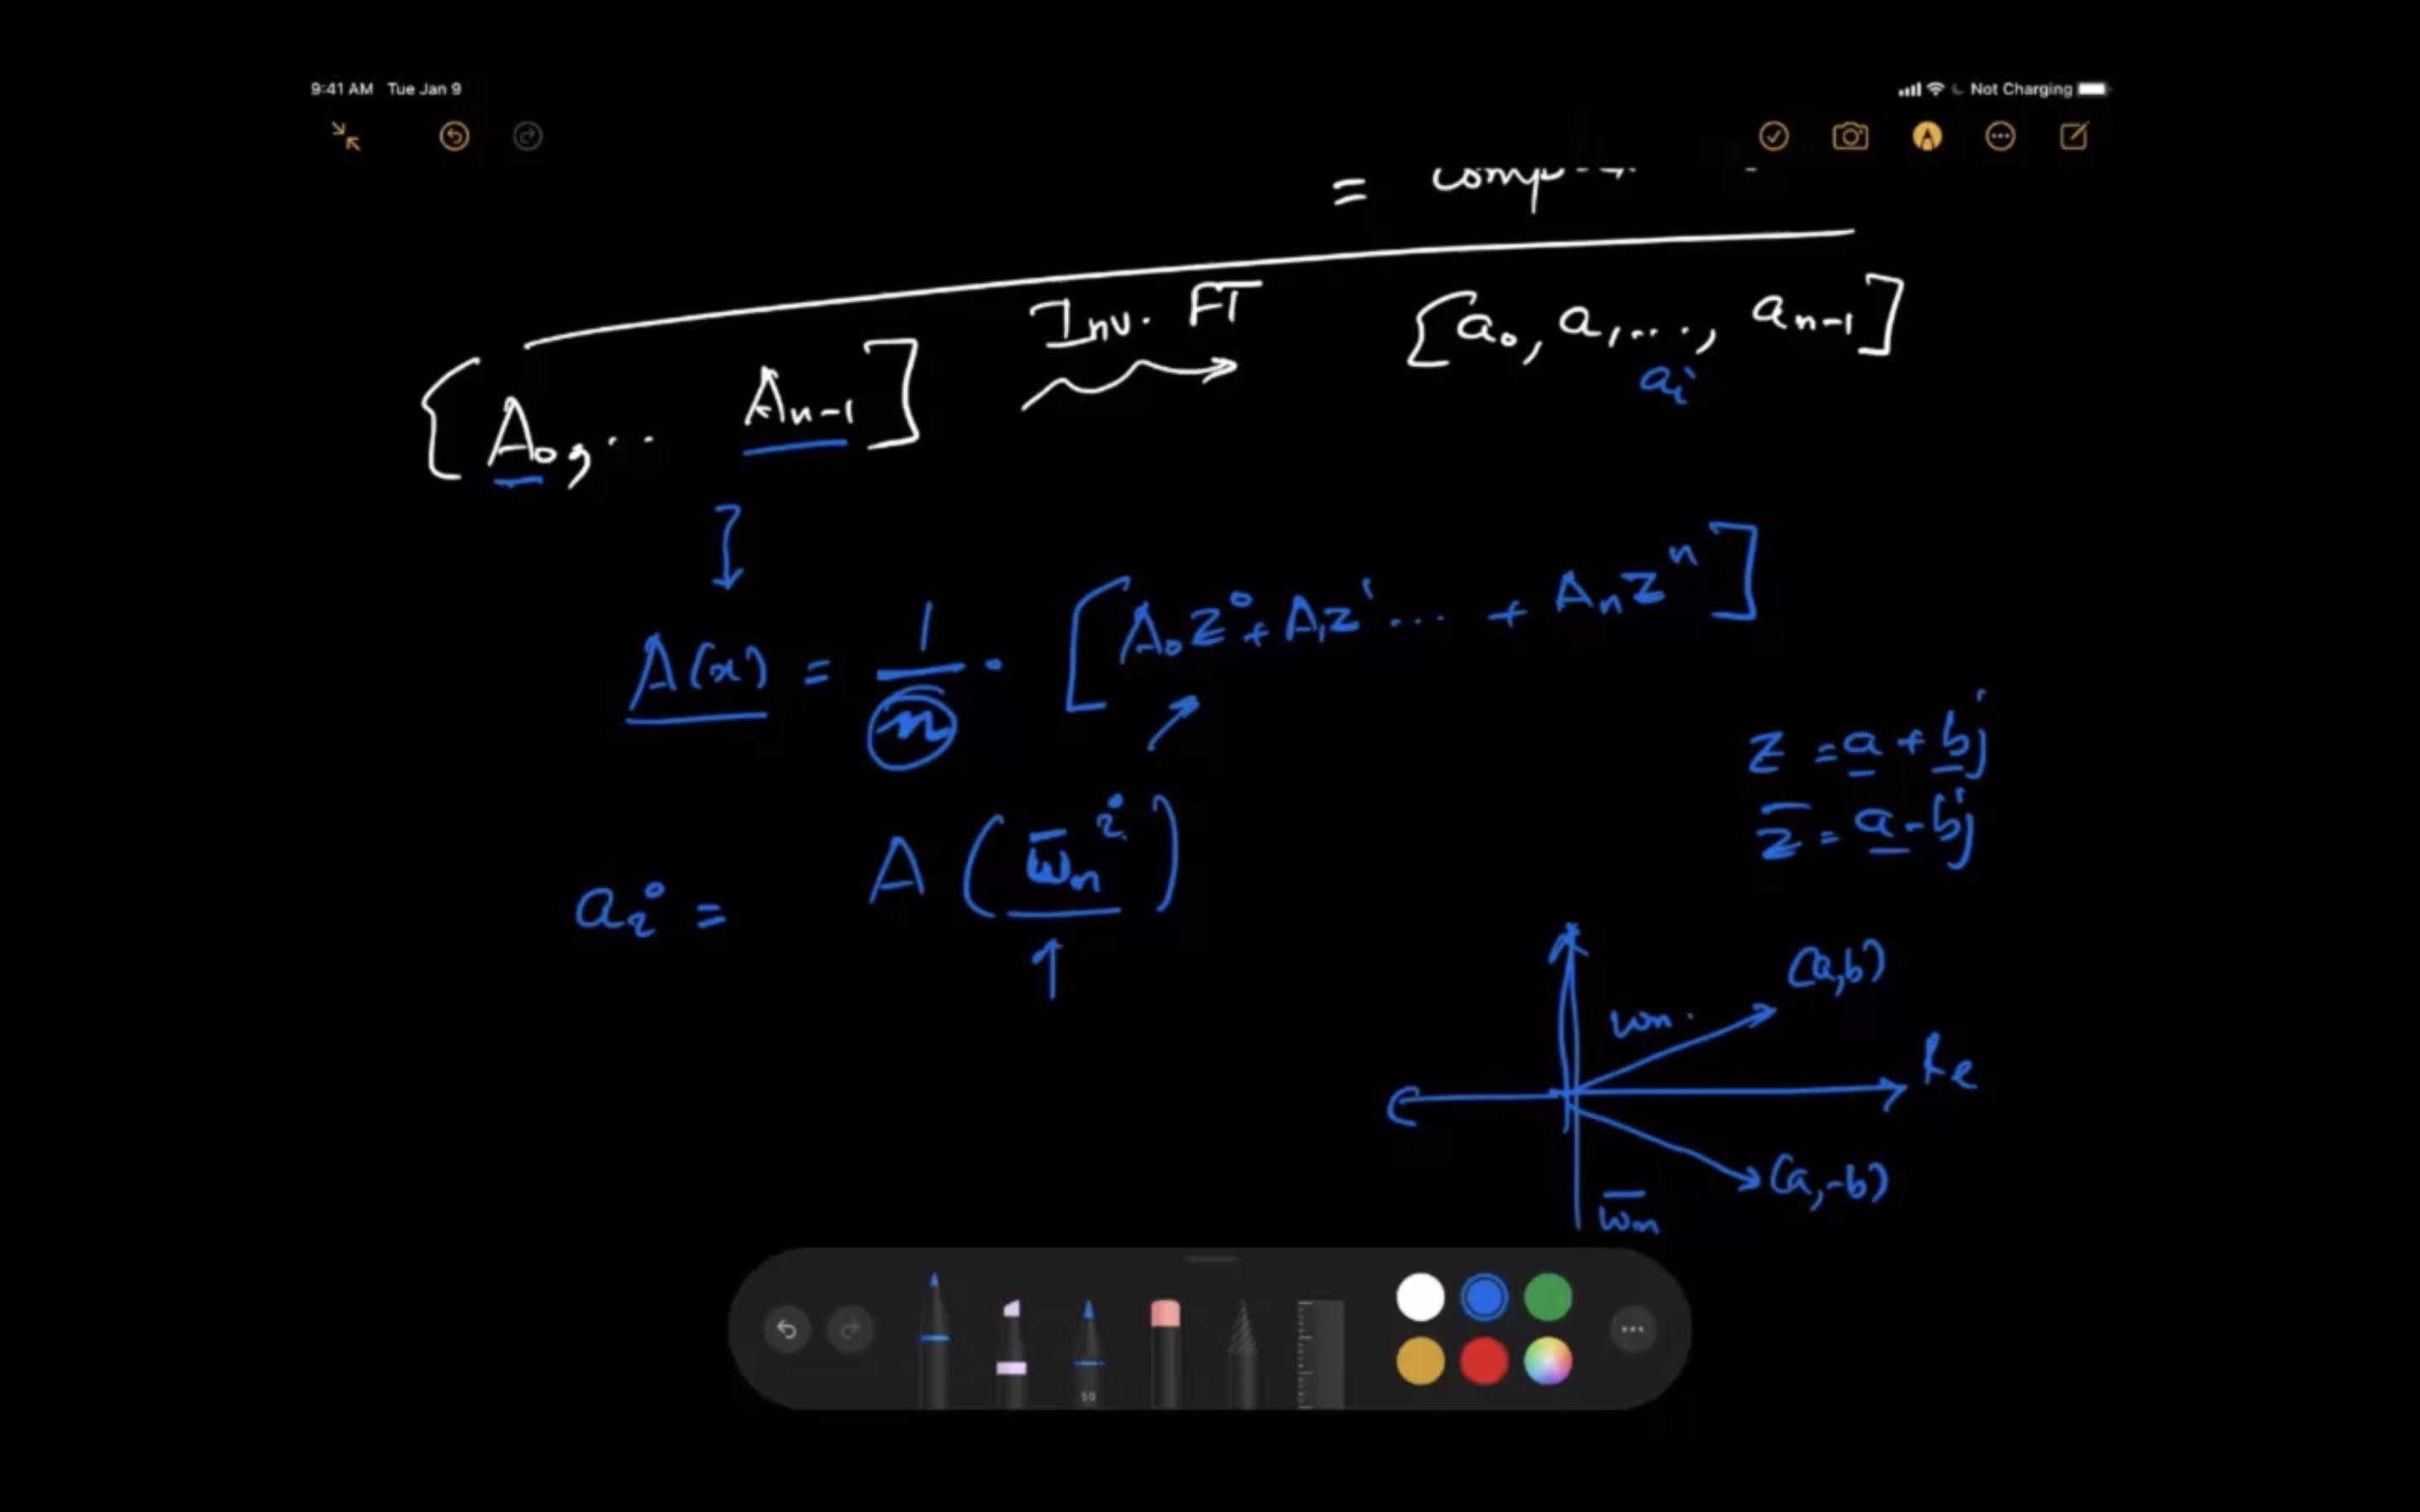 9:41 AM Tue Jan 9
Not Charging
=
[A₀, .. Aₙ₋₁] Inv. FT [a₀, a₁, ..., aₙ₋₁]
aᵢ
A(x) = 1/n · [A₀z⁰ + A₁z¹ ... + Aₙzⁿ]
z = a + bj
z̅ = a - bj
aᵢ = A(ω̅ₙⁱ)
(a,b)
ωₙ
Re
(a,-b)
ω̅ₙ
50